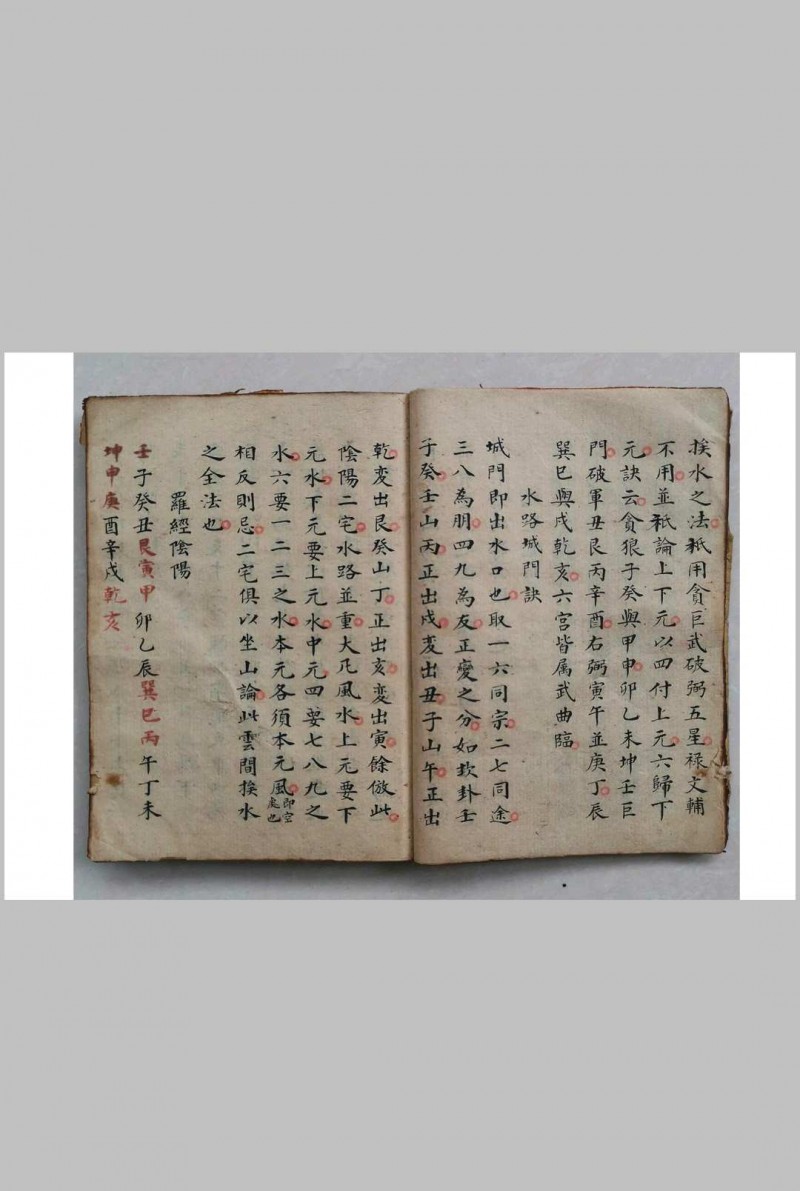 挨水之法祇用貪巨武破弼五星祿文輔
不用並祇論上下元以四付上元六歸下
元訣云貪狼子癸與甲申卯乙未坤壬巨
門破軍丑艮丙辛酉右弼寅午並庚丁辰
巽巳與戌乾亥六宮皆属武曲臨
水路城門訣
城門即出水口也取一六同宗二七同途
三八為朋四九為友正變之分如坎卦壬
子癸壬山丙正出戌変出丑子山午正出
乾变出艮癸山丁正出亥変出寅餘倣此
陰陽二宅水路並重大凡風水上元要下
元水下元要上元水中元四要七八九之
水六要一二三之水本元各須本元風即空處也
相反則忌二宅俱以坐山論此雲間挨水
之全法也
羅經陰陽
壬子癸丑艮寅甲卯乙辰巽巳丙午丁未
坤申庚酉辛戌乾亥